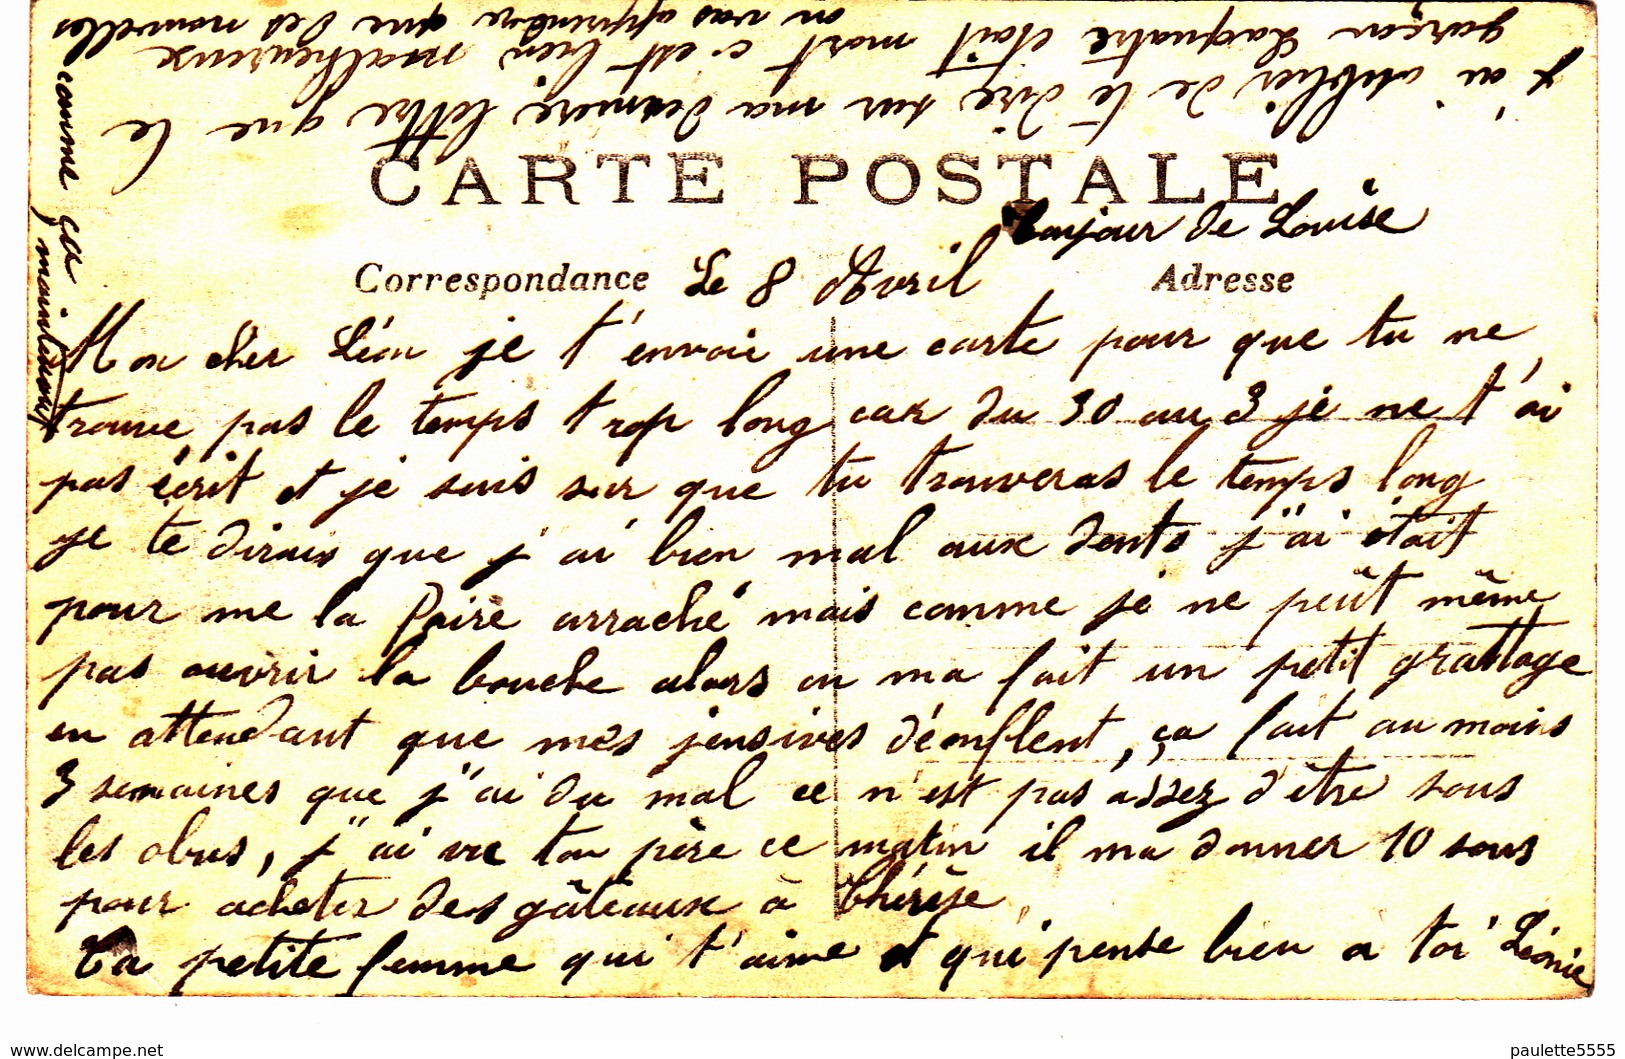 CARTE POSTALE
Bonjour de Louise
Correspondance Le 8 Avril Adresse
Mon cher Léon je t'envoie une carte pour que tu ne
trouve pas le temps trop long car du 30 au 3 je ne t'ai
pas écrit et je suis sur que tu trouveras le temps long
je te dirais que j'ai bien mal aux dents j'ai était
pour me la faire arraché mais comme je ne peût même
pas ouvrir la bouche alors on ma fait un petit grattage
en attendant que mes jensives démflent, ça fait au moins
3 semaines que j'ai du mal ce n'est pas assez d'être sous
les obus, j'ai vu ton père ce matin il ma donner 10 sous
pour acheter des gâteaux à Thérèse
Ta petite femme qui t'aime et qui pense bien a toi Léonie
J'ai oublier de te dire sur ma dernière lettre que le
garçon Laquatre était mort c'est bien malheureux
on vas apprendre que des nouvelles
comme ça
maintenant
www.delcampe.net
paulette5555